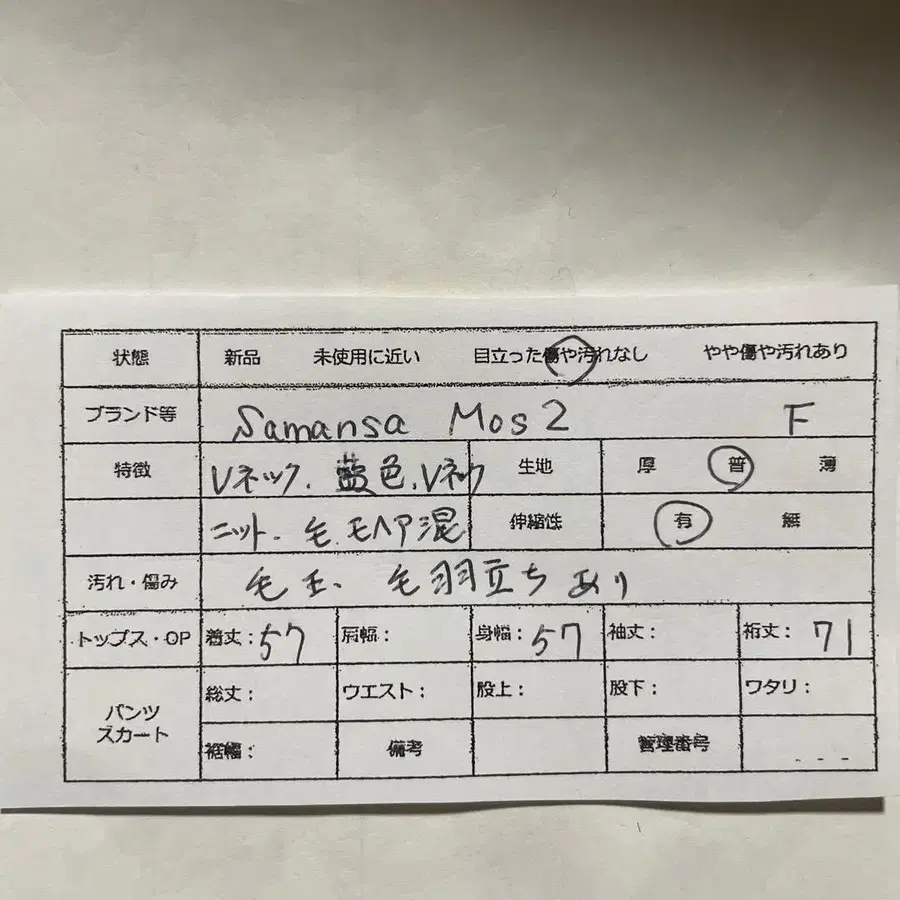 状態 新品 未使用に近い 目立った傷や汚れなし やや傷や汚れあり
ブランド等 Samansa Mos2 F
特徴 Vネック. 藍色. Vネック 生地 厚 普 薄
ニット. 毛. モヘア混 伸縮性 有 無
汚れ・傷み 毛玉、毛羽立ちあり
トップス・OP 着丈:57 肩幅: 身幅:57 袖丈: 裄丈:71
パンツ 総丈: ウエスト: 股上: 股下: ワタリ:
スカート 裾幅: 備考 管理番号 - - -